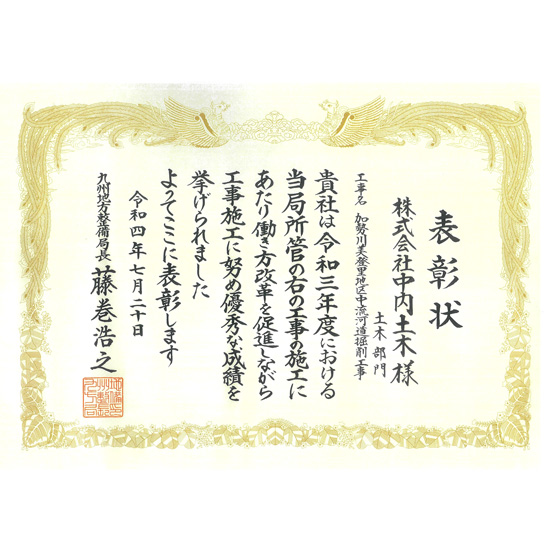 表彰状
土木部門
株式会社中内土木様
工事名 加勢川美登里地区中流河道掘削工事
貴社は令和三年度における
当局所管の右の工事の施工に
あたり働き方改革を促進しながら
工事施工に努め優秀な成績を
挙げられました
よってここに表彰します
令和四年七月二十日
九州地方整備局長 藤巻浩之